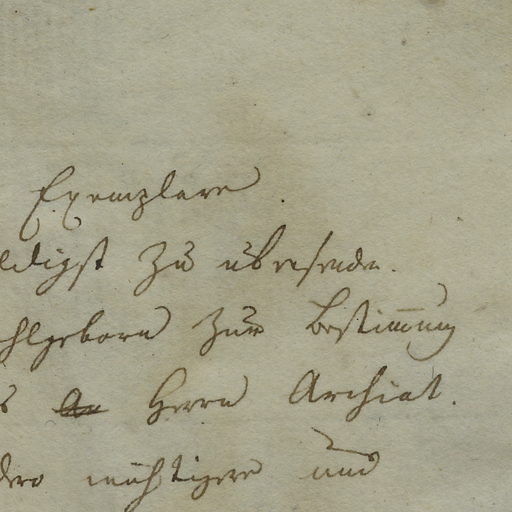 Exemplare
ldigst zu übersenden.
ohlgeborn zur Bestimmung
s Herrn Archiat.
dero wichtigere und